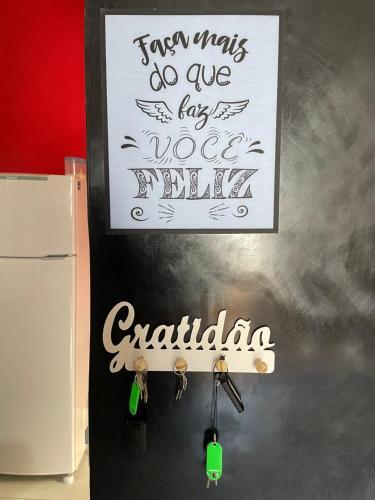 Faça mais
do que
faz
VOCÊ
FELIZ
Gratidão